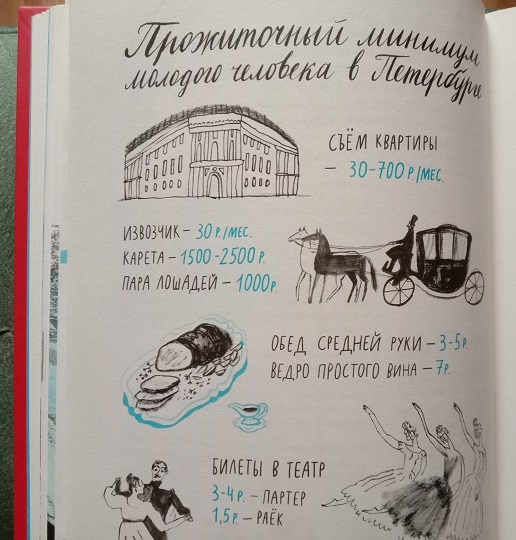 Прожиточный минимум
молодого человека в Петербурге
СЪЁМ КВАРТИРЫ
– 30-700 Р/МЕС.
ИЗВОЗЧИК – 30 Р./МЕС.
КАРЕТА – 1500-2500 Р.
ПАРА ЛОШАДЕЙ – 1000 Р.
ОБЕД СРЕДНЕЙ РУКИ – 3-5 Р.
ВЕДРО ПРОСТОГО ВИНА – 7 Р.
БИЛЕТЫ В ТЕАТР
3-4 Р. – ПАРТЕР
1,5 Р. – РАЁК